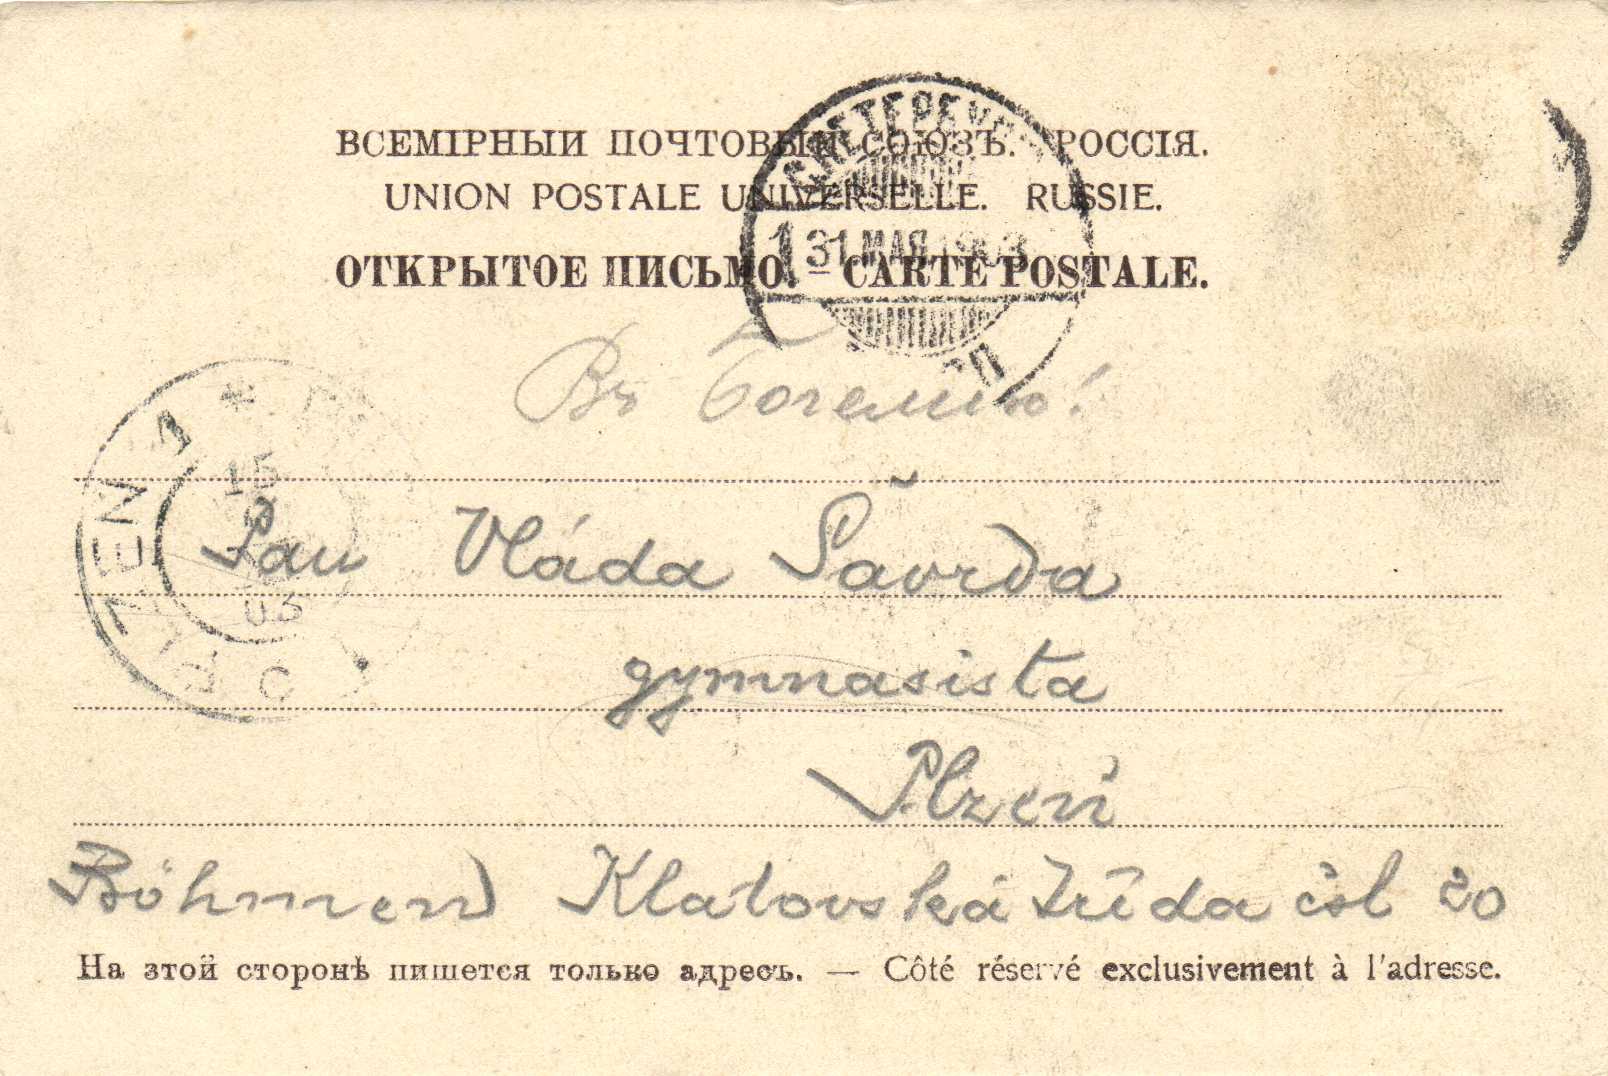 ВСЕМІРНЫЙ ПОЧТОВЫЙ СОЮЗЪ. РОССІЯ.
UNION POSTALE UNIVERSELLE. RUSSIE.
ОТКРЫТОЕ ПИСЬМО. – CARTE POSTALE.
С.ПЕТЕРБУРГ
1 31 МАЯ 1903
Въ Богемію!
PILZEN 1
15
03
Pan Vláda Šavrda
gymnasista
Plzeň
Böhmen) Klatovská třída čsl 20
На этой сторонѣ пишется только адресъ. — Côté réservé exclusivement à l'adresse.